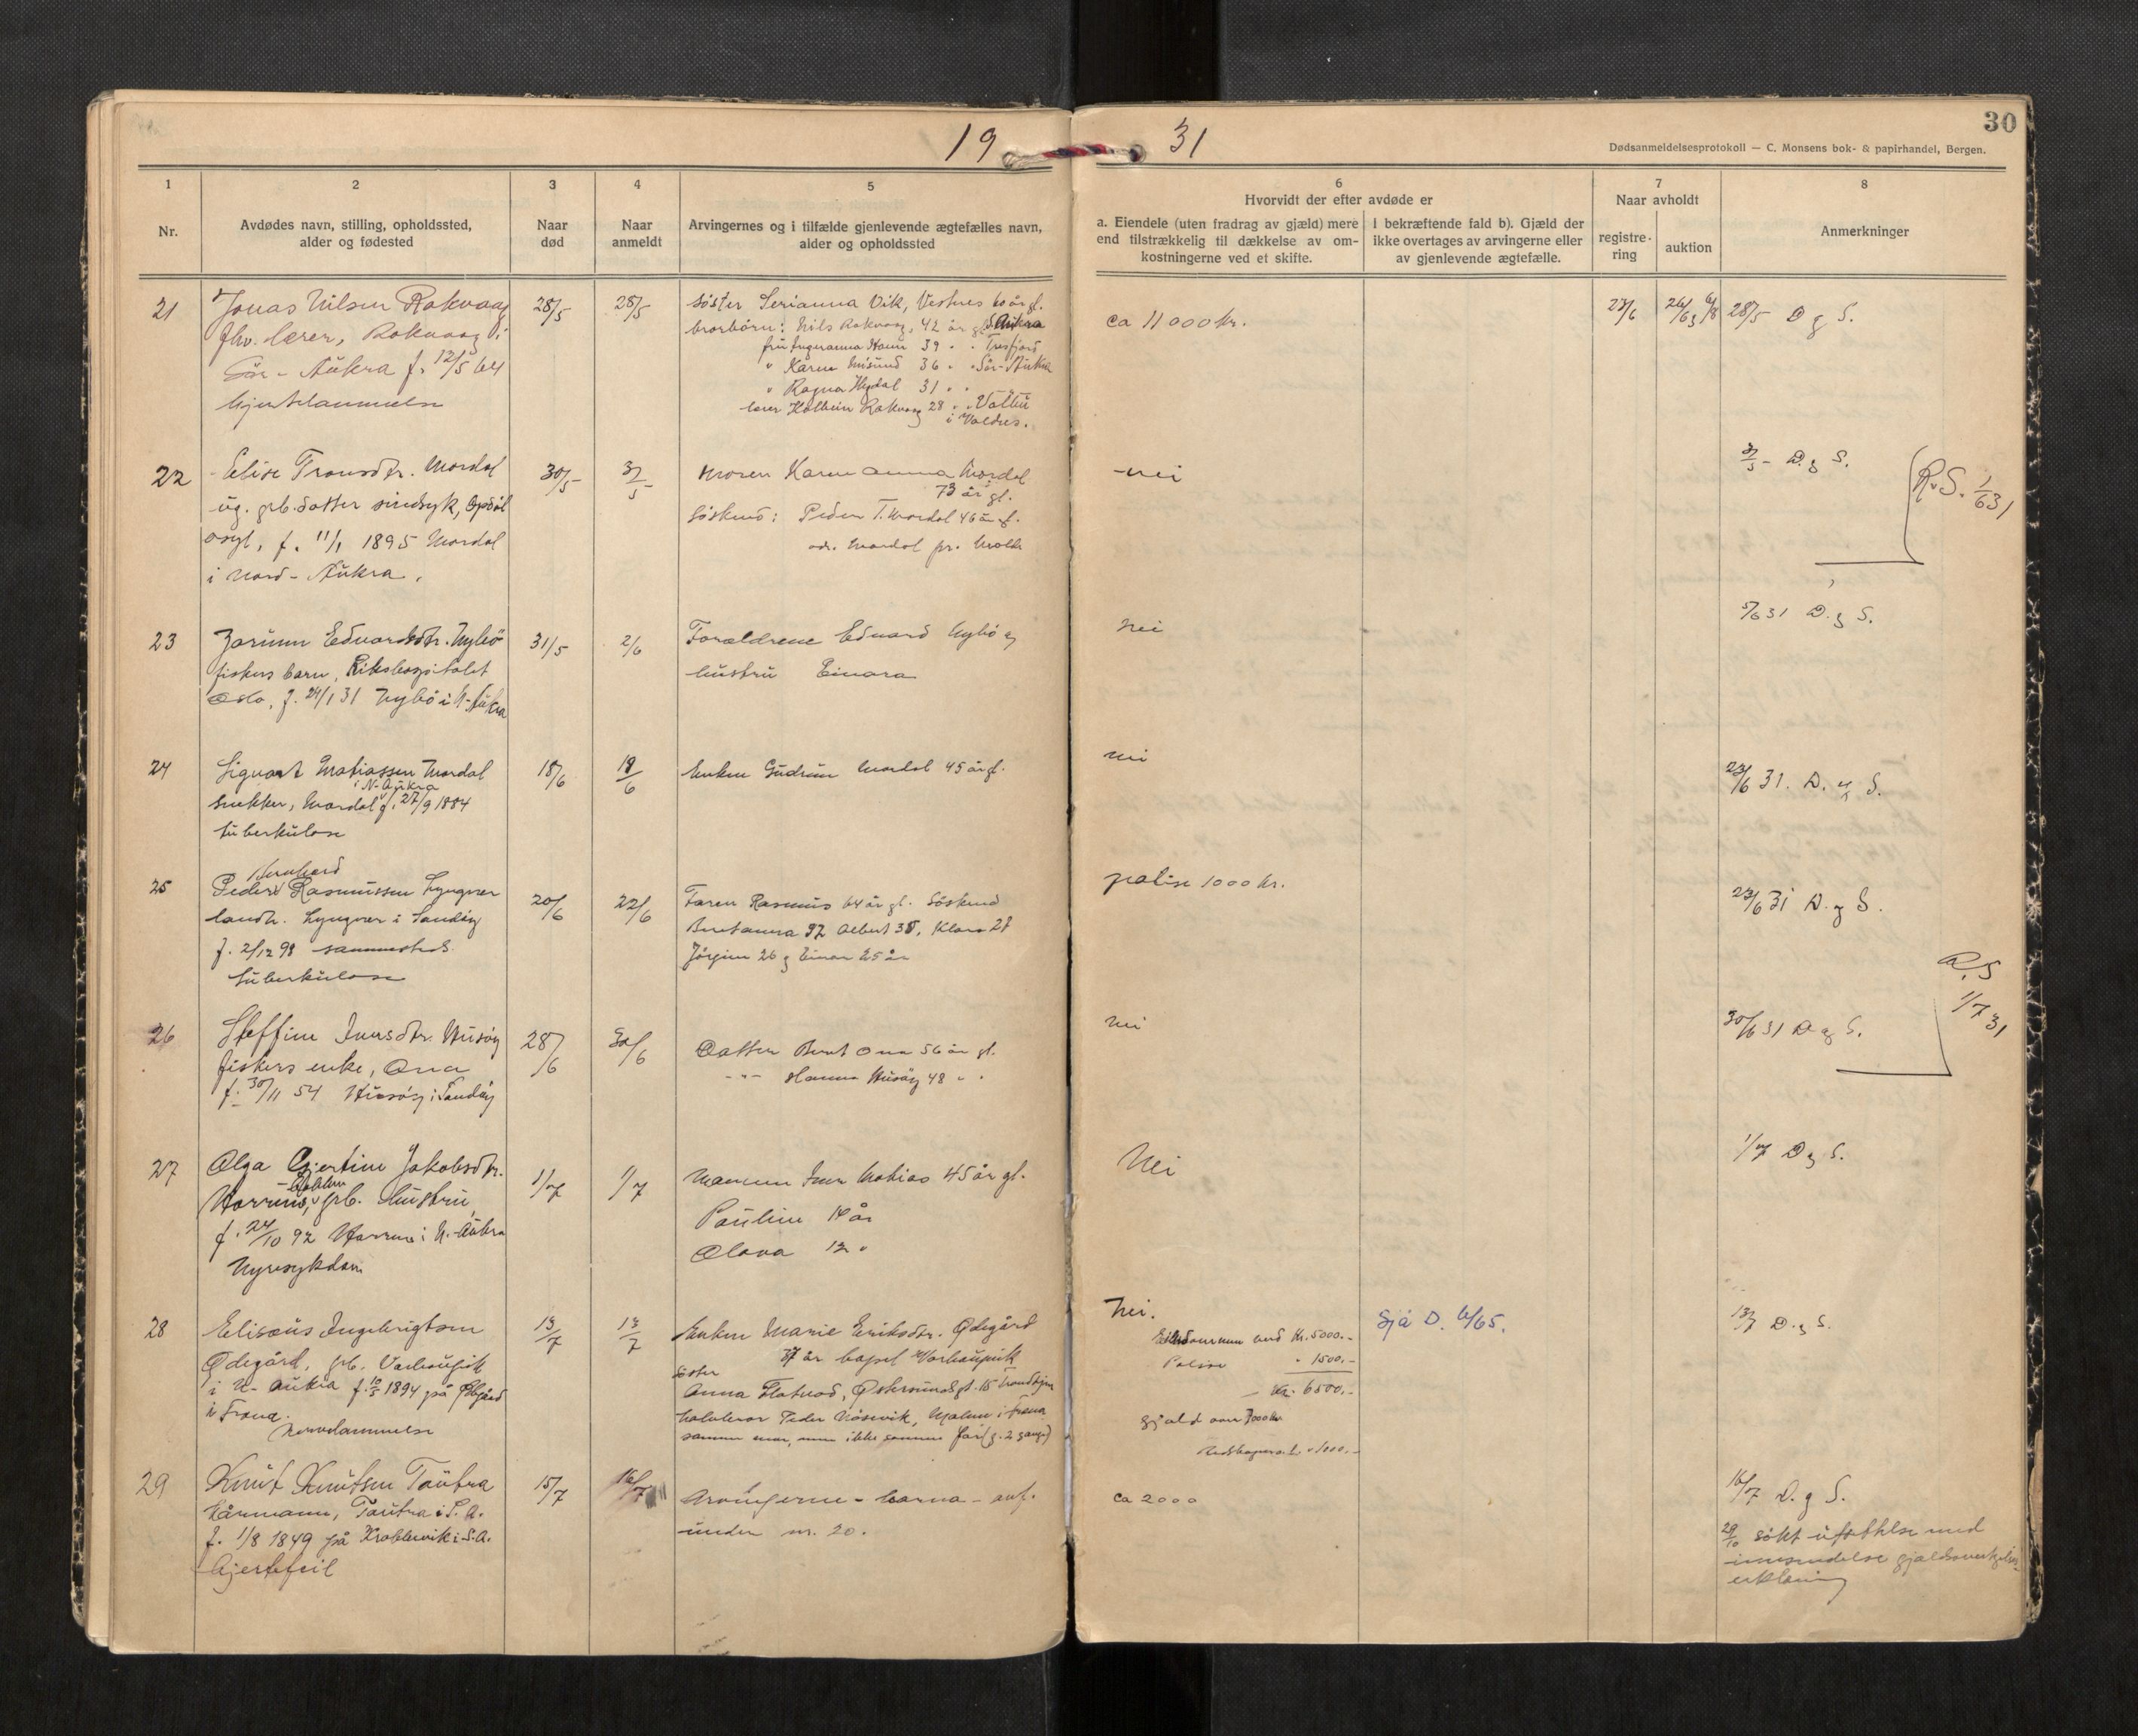 19 31
30
Dødsanmeldelsesprotokoll — C. Monsens bok- & papirhandel, Bergen.
1
2
3
4
5
6
7
8
Nr.
Avdødes navn, stilling, opholdssted,
alder og fødested
Naar
død
Naar
anmeldt
Arvingernes og i tilfælde gjenlevende ægtefælles navn,
alder og opholdssted
Hvorvidt der efter avdøde er
a. Eiendele (uten fradrag av gjæld) mere
end tilstrækkelig til dækkelse av om-
kostningerne ved et skifte.
I bekræftende fald b). Gjæld der
ikke overtages av arvingerne eller
av gjenlevende ægtefælle.
Naar avholdt
registre-
ring
auktion
Anmerkninger
21
Jonas Nilsen Rakvaag
fhv. lærer, Rakvaag i
Sør-Aukra f. 12/5 64
28/5
28/5
søster Serianna Vik, Vestnes 60 år gl.
brorbörn: Nils Rakvaag, 42 år gl. S. Aukra
fru Ingeranna 39 " " Tresfjord
" Karen Misund 36 " " Sör-Aukra
" Ragna 31 " "
lærer Rakvaag 28 " "
i Valdres.
ca 11000 kr.
23/6
28/5 D og S.
22
Elise Tronsdtr. Mordal
ug. grb.datter sindsyk, Opdøl
asyl, f. 11/1 1895 Mordal
i Nord-Aukra.
30/5
Moren Karen Anna Mordal
73 år gl.
Söskend: Peder T. Mordal 46 år gl.
adr. Mordal pr. Molde
nei
D. g S.
R.S. 1/6 31
23
Jorunn Edvardsdtr. Nybö
fiskers barn, Rikshospitalet
Oslo, f. 24/1 31 Nybö i N-Aukra
31/5
2/6
Forældrene Edvard Nybö og
hustru Einara
nei
5/6 31 D. g S.
24
Sigvart Matiassen Mordal
i N-Aukra
snekker, Mordal f. 27/9 1884
tuberkulose
18/6
18/6
Enken Gudrun Mordal 45 år gl.
nei
23/6 31. D. og S.
25
Bernhard
Peder Rasmussen Lyngver
landh. Lyngver i Sandöy
f. 2/12 98 sammesteds
tuberkulose
20/6
22/6
Faren Rasmus 64 år gl. Söskend
Berntanna 32 Albert 38, Klara 28
Jörgine 26 g Einar 25 år
polise 1000 kr.
23/6 31 D. g S.
26
Steffine Iversdtr. Husöy
fiskers enke, Ona
f. 30/11 54 Husöy i Sandöy
28/6
30/6
Datter Berit Ona 56 år gl.
-"- Hanna Husöy 48 " "
nei
30/6 31 D og S.
R.S
1/7 31
27
Olga Gjertine Jakobsdtr.
Harrøis, grb. hustru
f. 24/10 92 Harrøis i N-Aukra
Nyresykdom
1/7
1/7
Mannen Iver Matias 45 år gl.
Pauline 14 år
Olava 12 "
Nei
1/7 D g S.
28
Elisæus Ingebrigtsen
Ødegård, grb.
i N-Aukra f. 1894 på Ødegård
i Fræna.
13/7
13/7
Enken Marie Eriksdtr. Ødegård
37 år
søster
Anna Flatnad, Østersundsgt. 15 Trondhjem
halvbror Peder Nåsvik, Malme i Fræna
samme mor, men ikke samme far (g. 2 gange)
Nei.
Eiendommen verd Kr. 5000.-
Polise " 1500.-
Kr. 6500.-
gjæld over 7000 kr
1000.-
Sjå D. 6/65.
13/7 D. g S.
29
Knut Knutsen Tautra
kårmann, Tautra i S. A.
f. 1/8 1849 på i S.A.
hjertefeil
15/7
16/7
Arvingerne - barna - anf.
under nr. 20.
ca 2000
16/7 D. g S.
29/10 søkt utsettelse med
innsendelse
erklæring